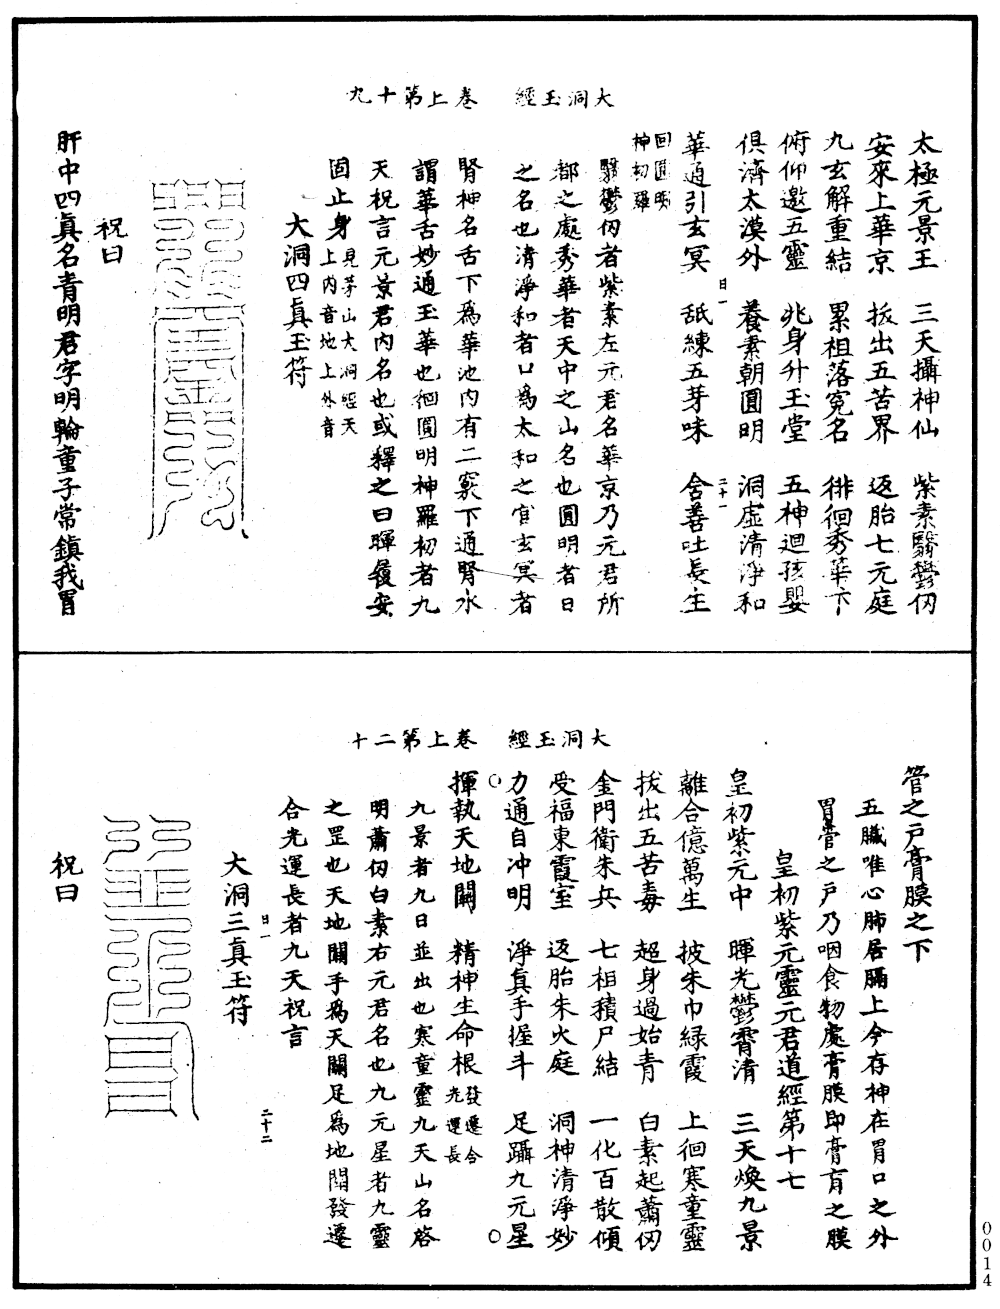 大洞玉經　卷上第十九
太極元景王　三天攝神仙　紫素翳鬱仞
安來上華京　拔出五苦界　返胎七元庭
九玄解重結　累祖落冤名　徘徊秀華下
俯仰邀五靈　兆身升玉堂　五神迴孩嬰
俱濟太漠外　養素朝圓明　洞虛清淨和
日一　二十一
華通引玄冥　舐練五芽味　含善吐長生
回圓明
神初羅
翳鬱仞者紫素左元君名華京乃元君所
都之處秀華者天中之山名也圓明者日
之名也清淨和者口為太和之宮玄冥者
腎神名舌下為華池內有二竅下通腎水
謂華舌妙通玉華也徊圓明神羅初者九
天祝言元景君內名也或釋之曰暉徊安
固止身見茅山大洞經天
上內音地上外音
大洞四真玉符
祝曰
肝中四真名青明君字明輪童子常鎮我胃
大洞玉經　卷上第二十
管之戶膏膜之下
五臟唯心肺居膈上今存神在胃口之外
胃管之戶乃咽食物處膏膜即膏肓之膜
皇初紫元靈元君道經第十七
皇初紫元中　暉光鬱霄清　三天煥九景
離合億萬生　披朱巾綠霞　上徊寒童靈
拔出五苦毒　超身過始青　白素起蕭仞
金門衛朱兵　七相積尸結　一化百散傾
受福東霞室　返胎朱火庭　洞神清淨妙
力通自冲明　淨真手握斗　足躡九元星
揮執天地關　精神生命根發遷合
光運長
九景者九日並出也寒童靈九天山名啓
明蕭仞白素右元君名也九元星者九靈
之罡也天地關手為天關足為地關發遷
合光運長者九天祝言
日一　二十二
大洞三真玉符
祝曰
0014